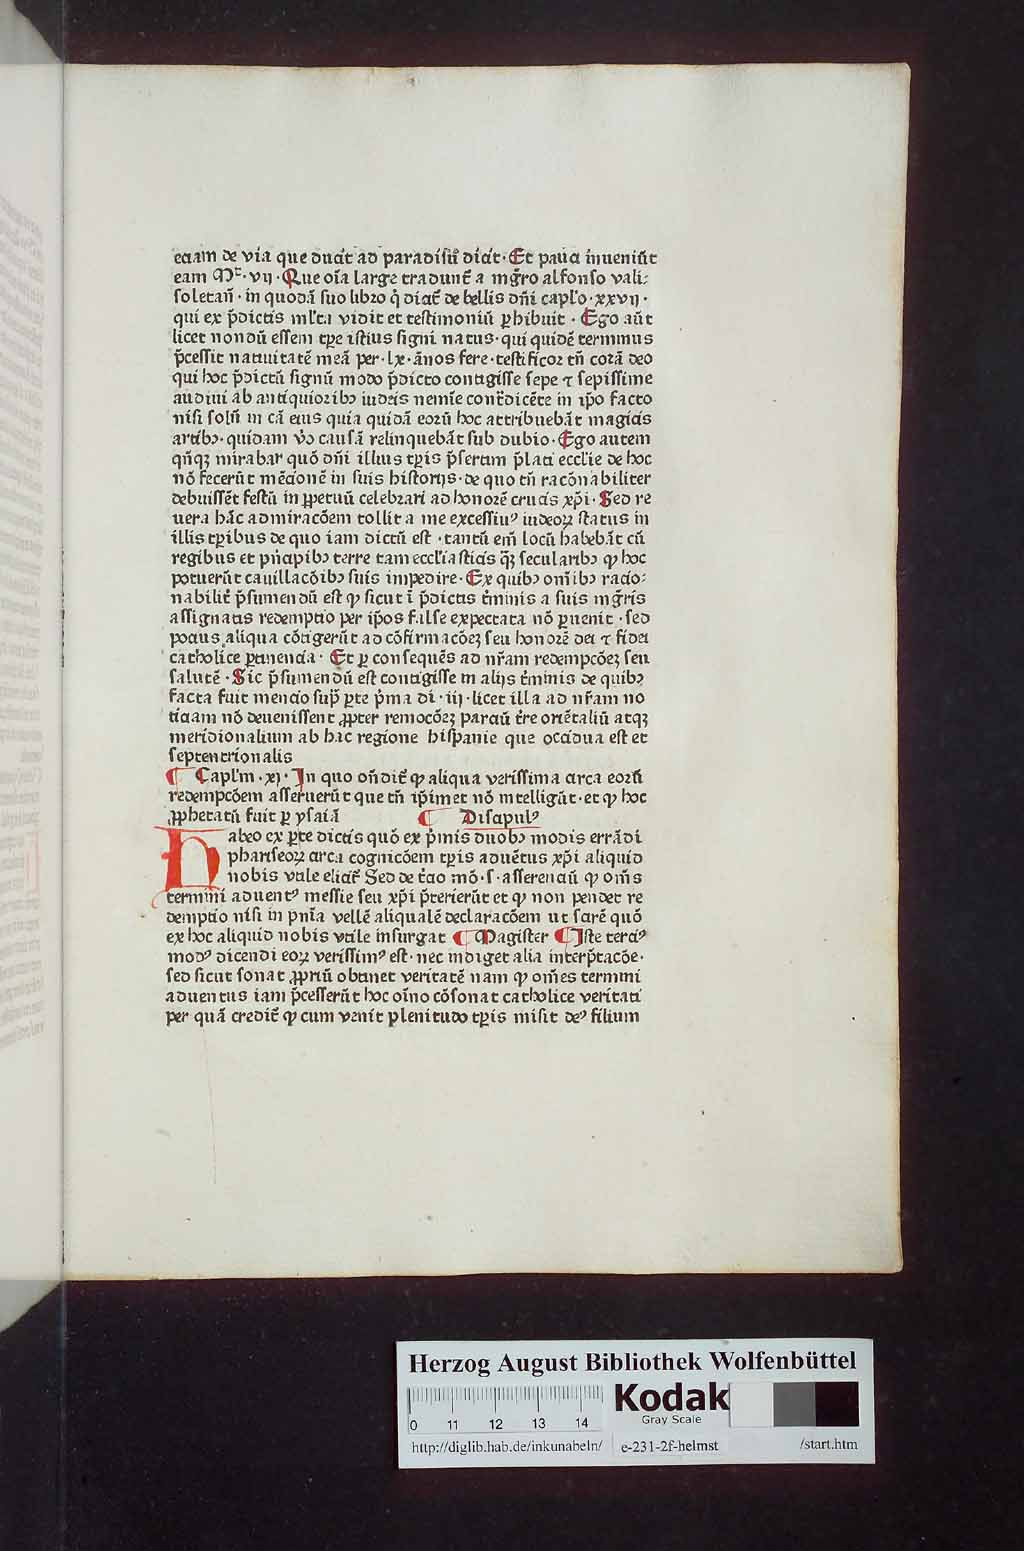 eciam de via que ducit ad paradisū dicit. Et pauci inueniūt
eam Mt. vij. Que oīa large tradunt̄ a mḡro alfonso vali-
soletan̄. in quodā suo libro q̇ dicit̄ de bellis dn̄i capl'o. xxvij.
qui ex p̄dictis ml'ta vidit et testimoniū ꝑhibuit. Ego aūt
licet nondū essem tꝑe istius signi natus. qui quidē terminus
p̄cessit natiuitatē meā per. lx. ānos fere. testificor tn̄ corā deo
qui hoc p̄dictū signū modo p̄dicto contigisse sepe ⁊ sepissime
audiui ab antiquioribꝫ iudeis nemīe cont̄dicēte in ip̄o facto
nisi solū in cā eius quia quidā eorū hoc attribuebāt magicis
artibꝫ. quidam v̊o causā relinquebāt sub dubio. Ego autem
qn̄qꝫ mirabar quō dn̄i illius tꝑis p̄sertim p̄lati eccl'ie de hoc
nō fecerūt mēcionē in suis historijs. de quo tn̄ racōnabiliter
debuissēt festū in ꝑpetuū celebrari ad honorē crucis xp̄i. Sed re
uera hāc admiracōem tollit a me excessiuꝰ iudeoꝝ status in
illis tꝑibus de quo iam dictū est. tantū em̄ locū habebāt cū
regibus et pn̄cipibꝫ terre tam eccl'iasticis qꝫ secularibꝫ ꝙ hoc
potuerūt cauillacōibꝫ suis impedire. Ex quibꝫ om̄ibꝫ racio-
nabilit̄ p̄sumendū est ꝙ sicut ī p̄dictis t̄minis a suis mḡris
assignatis redemptio per ip̄os false expectata nō ꝑuenit. sed
pocius aliqua cōtigerūt ad cōfirmacōeꝫ seu honorē dei ⁊ fidei
catholice ꝑtinencia. Et ꝑ consequēs ad nr̄am redempcōeꝫ seu
salutē. Sic p̄sumendū est contigisse in alijs t̄minis de quibꝫ
facta fuit mencio sup̄ ꝑte p̄ma di. iij. licet illa ad nr̄am no
ticiam nō deuenissent ꝓpter remocōeꝫ parciū t̄re oriētaliū atqꝫ
meridionalium ab hac regione hispanie que occidua est et
septentrionalis
¶ Capl'm. xj. In quo on̄dit̄ ꝙ aliqua verissima circa eorū
redempcōem asseruerūt que tn̄ ip̄imet nō intelligūt. et ꝙ hoc
ꝓphetatū fuit ꝑ ysaiā ¶ Discipulꝰ
Habeo ex ꝑte dictis quō ex p̄mis duobꝫ modis errādi
phariseoꝝ circa cognicōem tꝑis aduētus xp̄i aliquid
nobis vtile elicit̄ Sed de t̄cio mō. s. asserenciū ꝙ om̄s
termini aduentꝰ messie seu xp̄i p̄terierūt et ꝙ non pendet re
demptio nisi in pn̄ia vellē aliqualē declaracōem ut scirē quō
ex hoc aliquid nobis vtile insurgat ¶ Magister ¶ Iste terciꝰ
modꝰ dicendi eoꝝ verissimꝰ est. nec indiget alia interp̄tacōe.
sed sicut sonat ꝓpriū obtinet veritatē nam ꝙ om̄es termini
aduentus iam p̄cesserūt hoc oīno cōsonat catholice veritati
per quā credit̄ ꝙ cum venit plenitudo tꝑis misit deꝰ filium
Herzog August Bibliothek Wolfenbüttel
Kodak
Gray Scale
0 11 12 13 14
http://diglib.hab.de/inkunabeln/ e-231-2f-helmst /start.htm